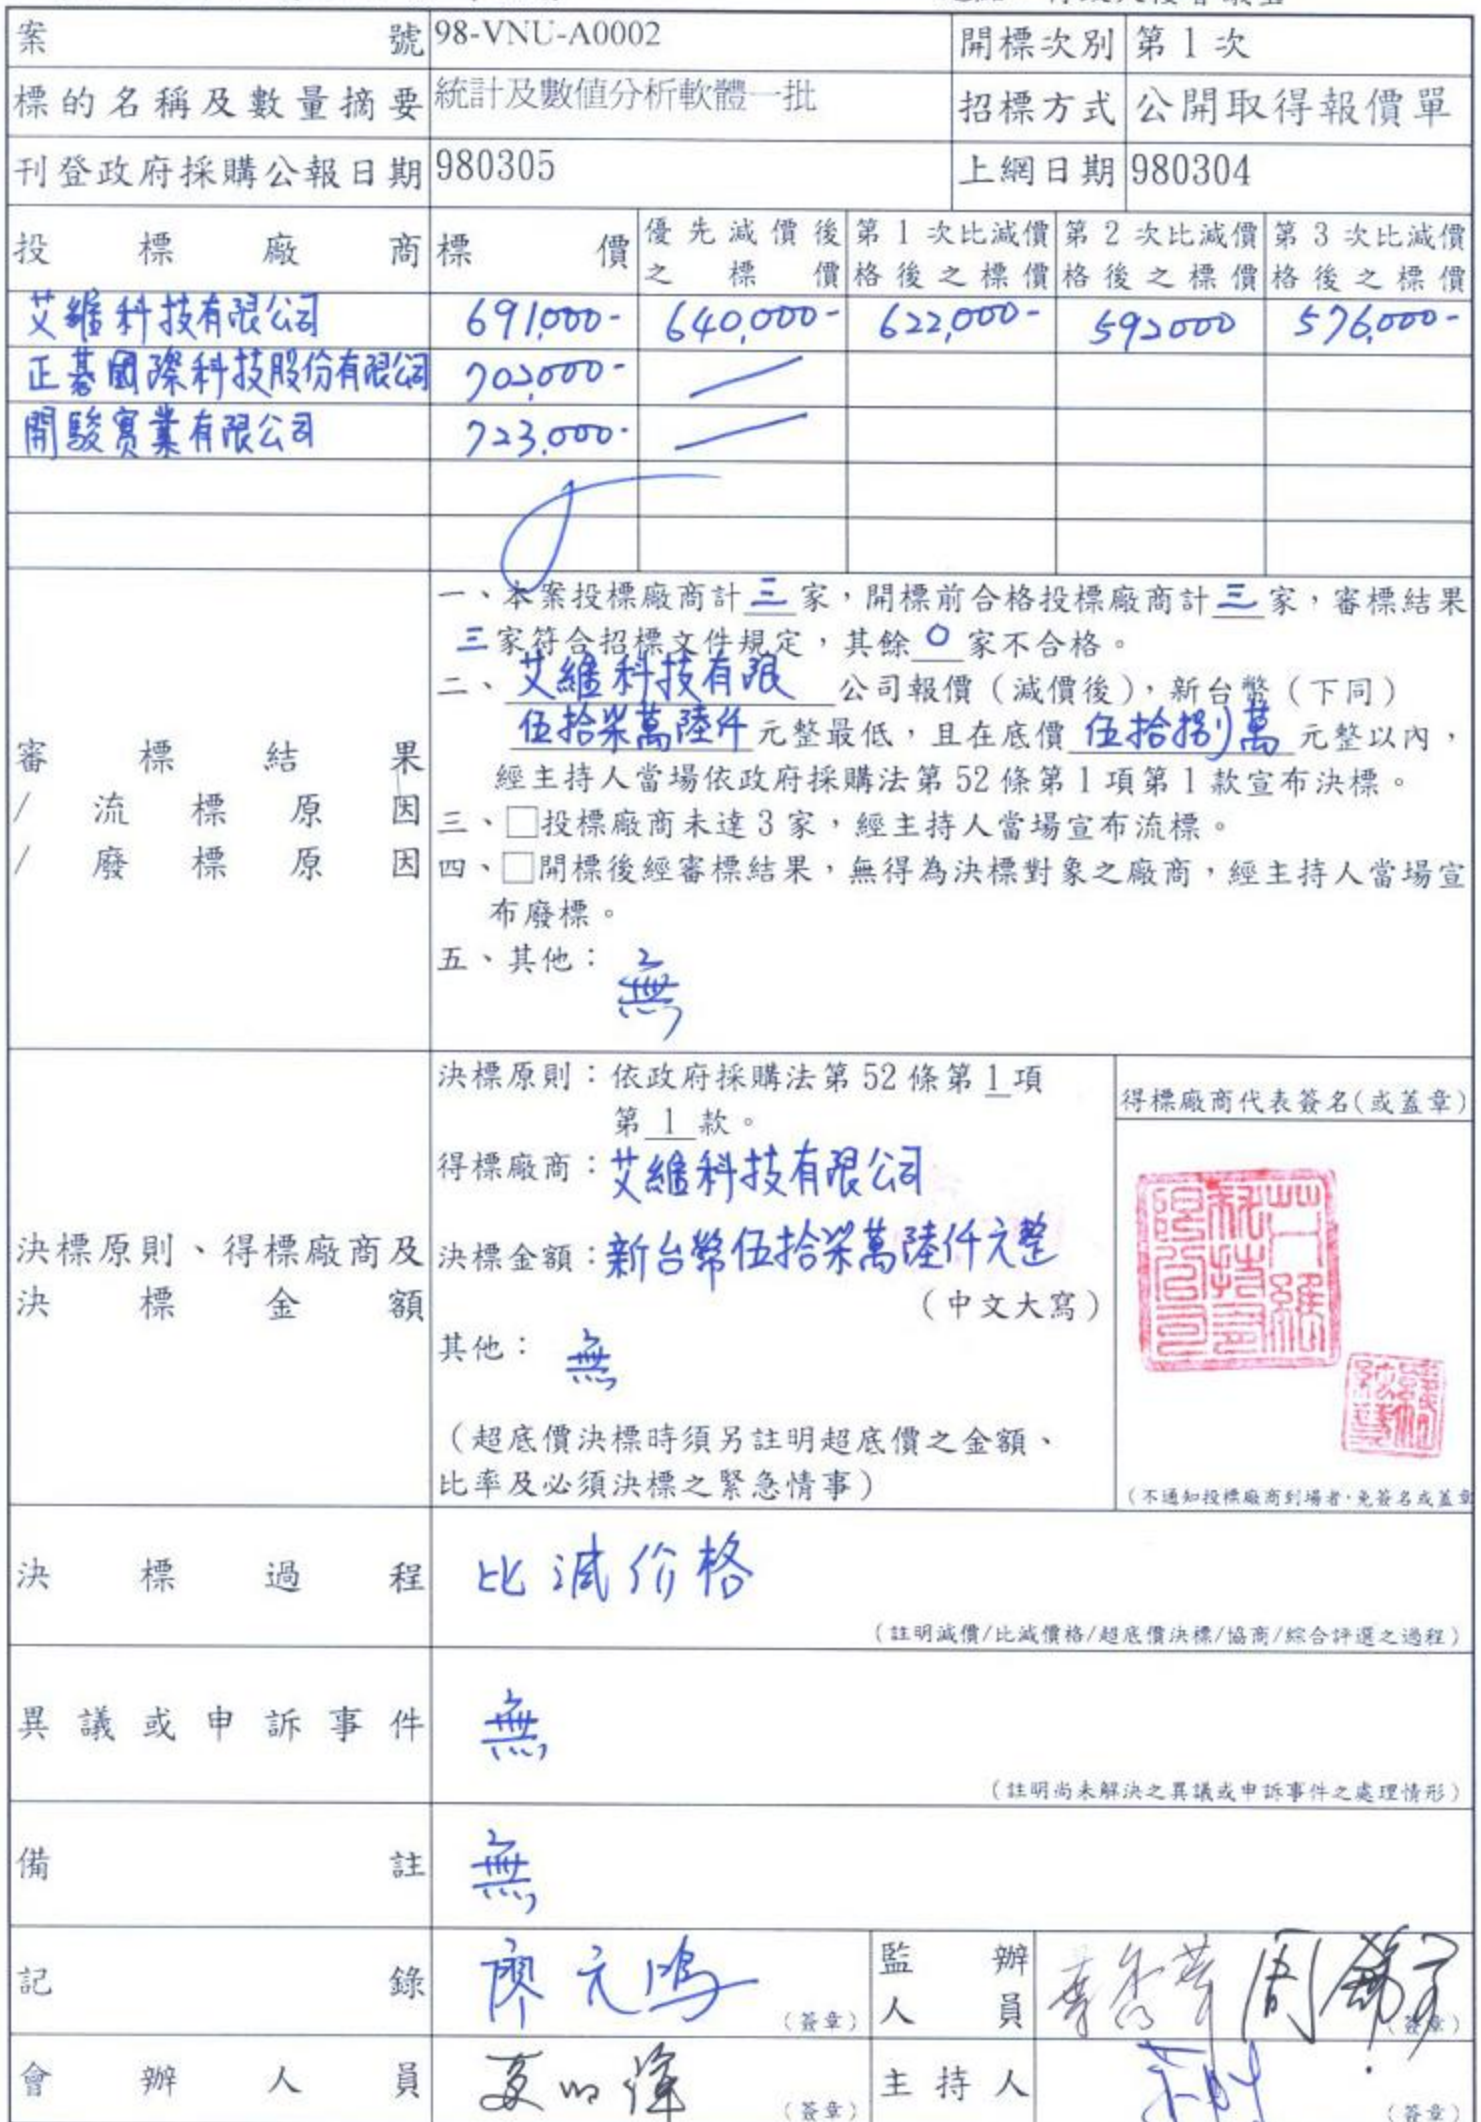 案號 98-VNU-A0002 開標次別 第1次
標的名稱及數量摘要 統計及數值分析軟體一批 招標方式 公開取得報價單
刊登政府採購公報日期 980305 上網日期 980304
投標廠商 標價 優先減價後之標價 第1次比減價格後之標價 第2次比減價格後之標價 第3次比減價格後之標價
艾維科技有限公司 691,000- 640,000- 622,000- 592000 576,000-
正碁國際科技股份有限公司 702,000-
開駿實業有限公司 723,000-
審標結果
/流標原因
/廢標原因
一、本案投標廠商計三家,開標前合格投標廠商計三家,審標結果
三家符合招標文件規定,其餘0家不合格。
二、艾維科技有限公司報價(減價後),新台幣(下同)
伍拾柒萬陸仟元整最低,且在底價伍拾捌萬元整以內,
經主持人當場依政府採購法第52條第1項第1款宣布決標。
三、□投標廠商未達3家,經主持人當場宣布流標。
四、□開標後經審標結果,無得為決標對象之廠商,經主持人當場宣
布廢標。
五、其他:無
決標原則、得標廠商及
決標金額
決標原則:依政府採購法第52條第1項
第1款。
得標廠商:艾維科技有限公司
決標金額:新台幣伍拾柒萬陸仟元整
(中文大寫)
其他:無
(超底價決標時須另註明超底價之金額、
比率及必須決標之緊急情事)
得標廠商代表簽名(或蓋章)
艾維科技有限公司
(不通知投標廠商到場者,免簽名或蓋章
決標過程 比減价格
(註明減價/比減價格/超底價決標/協商/綜合評選之過程)
異議或申訴事件 無
(註明尚未解決之異議或申訴事件之處理情形)
備註 無
記錄 廖元鴻 (簽章) 監辦人員 (簽章)
會辦人員 (簽章) 主持人 (簽章)